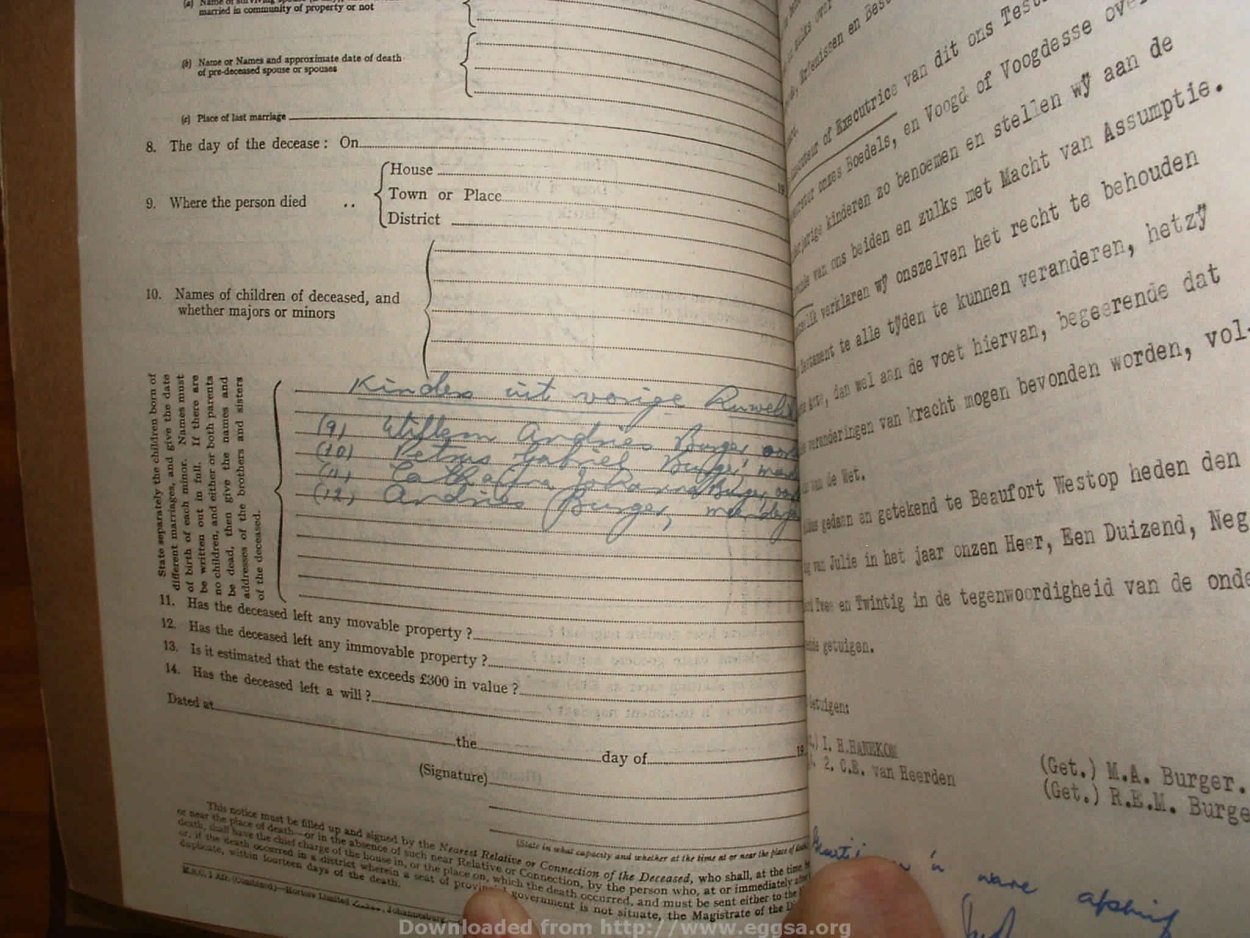 (a) Name of surviving spouse
married in community of property or not
(b) Name or Names and approximate date of death
of pre-deceased spouse or spouses
(c) Place of last marriage
8. The day of the decease: On
19
9. Where the person died ..
House
Town or Place
District
10. Names of children of deceased, and
whether majors or minors
State separately the children born of
different marriages, and give the date
of birth of each minor. Names must
be written out in full. If there are
no children, and either or both parents
be dead, then give the names and
addresses of the brothers and sisters
of the deceased.
Kinders uit vorige
(9) Willem Andries Burger,
(10) Petrus Gabriel Burger,
(11) Johanna Burger,
(12) Andries Burger,
11. Has the deceased left any movable property?
12. Has the deceased left any immovable property?
13. Is it estimated that the estate exceeds £300 in value?
14. Has the deceased left a will?
Dated at the day of 19
(Signature)
(State in what capacity and whether at the time at or near the place of
This notice must be filled up and signed by the Nearest Relative or Connection of the Deceased, who shall, at the time
or near the place of death—or in the absence of such near Relative or Connection, by the person who, at or immediately
death, shall have the chief charge of the house in, or the place on, which the death occurred, and must be sent either to the
or, if the death occurred in a district wherein a seat of provincial government is not situate, the Magistrate of the
duplicate, within fourteen days of the death.
Johannesburg
van dit ons
of Executrice
onzes Boedels, en Voogd of Voogdesse
kinderen zo benoemen en stellen wÿ aan de
van ons beiden en zulks met Macht van Assumptie.
verklaren wÿ onszelven het recht te behouden
te alle tÿden te kunnen veranderen, hetzÿ
dan wel aan de voet hiervan, begeerende dat
veranderingen van kracht mogen bevonden worden, vol-
van de Wet.
gedaan en getekend te Beaufort Westop heden den
van Julie in het jaar onzen Heer, Een Duizend, Neg
Twee en Twintig in de tegenwoordigheid van de onde
getuigen.
I. H. HANEKOM
2. C.E. van Heerden
(Get.) M.A. Burger.
(Get.) R.E.M. Burge
'n ware afskrif
Downloaded from http://www.eggsa.org